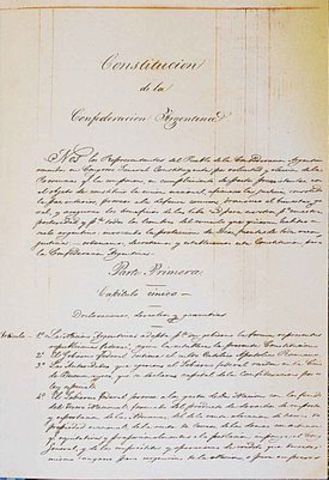 Constitucion
de la
Confederacion Argentina
Nos los Representantes del Pueblo de la Confederacion Argentina
en Congreso General Constituyente por voluntad y eleccion de las
Provincias que la componen, en cumplimiento de pactos preexistentes, con
el objeto de constituir la union nacional, afianzar la justicia, consolidar
la paz interior, proveer a la defensa comun, promover el bienestar ge-
neral, y asegurar los beneficios de la libertad para nosotros, pª nuestra
posteridad y pª todos los hombres del mundo que quieran habitar en el
suelo argentino; invocando la proteccion de Dios, fuente de toda razon y
justicia: ordenamos, decretamos y establecemos esta Constitucion, para
la Confederacion Argentina.
Parte Primera.
Capitulo unico
Declaraciones, derechos y garantias
Articulo 1º La Nacion Argentina adopta pª su gobierno la forma representativa
republicana federal, segun la establece la presente Constitucion.
2º El Gobierno Federal sostiene el culto Catolico Apostolico Romano.
3º Las Autoridades que ejercen el Gobierno federal residen en la Ciudad
de Buenos Ayres, que se declara capital de la Confederacion por una
ley especial.
4º El Gobierno Federal provee a los gastos de la Nacion con los fondos
del Tesoro Nacional, formado del producto de derechos de importacion
y exportacion
propiedad nacional,
y de los empréstitos y operaciones de crédito